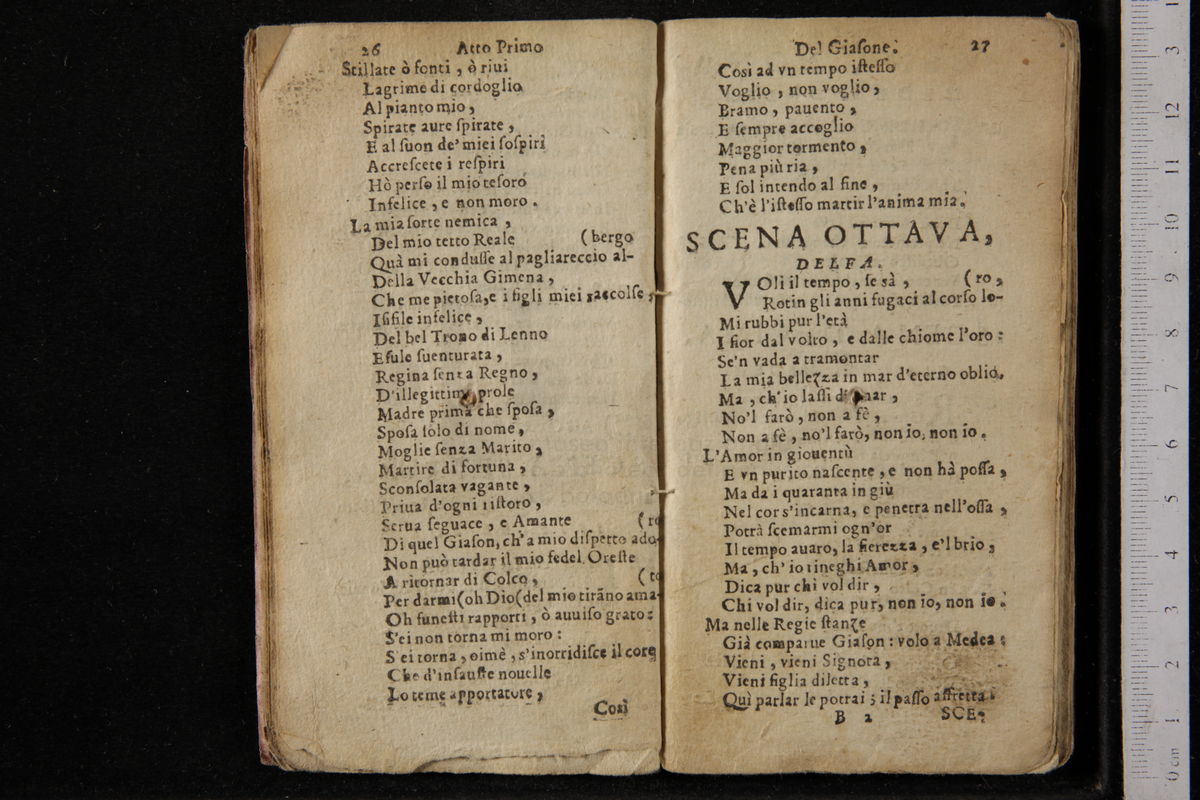 26 Atto Primo
Stillate ò fonti, ò riui
Lagrime di cordoglio
Al pianto mio,
Spirate aure ſpirate,
E al ſuon de' miei ſoſpiri
Accreſcete i reſpiri
Hò perſo il mio teſoro
Infelice, e non moro.
La mia ſorte nemica,
Del mio tetto Reale (bergo
Quà mi conduſſe al pagliareccio al-
Della Vecchia Gimena,
Che me pietoſa, e i figli miei raccolſe,
Iſifile infelice,
Del bel Trono di Lenno
Eſule ſuenturata,
Regina ſenza Regno,
D'illegittima prole
Madre prima che ſpoſa,
Spoſa ſolo di nome,
Moglie ſenza Marito,
Martire di fortuna,
Sconſolata vagante,
Priua d'ogni riſtoro,
Serua ſeguace, e Amante (ro
Di quel Giaſon, ch'a mio diſpetto ado-
Non può tardar il mio fedel Oreſte
A ritornar di Colco, (to
Per darmi (oh Dio (del mio tiranno ama-
Oh funeſti rapporti, ò auuiſo grato:
S'ei non torna mi moro:
S'ei torna, oimè, s'inorridiſce il core
Che d'infauſte nouelle
Lo teme apportatore,
Così
Del Giaſone. 27
Così ad vn tempo iſteſſo
Voglio, non voglio,
Bramo, pauento,
E ſempre accoglio
Maggior tormento,
Pena più ria,
E ſol intendo al fine,
Ch'è l'iſteſſo martir l'anima mia.
SCENA OTTAVA,
DELFA.
VOli il tempo, ſe sà, (ro,
Rotin gli anni fugaci al corſo lo-
Mi rubbi pur l'età
I fior dal volto, e dalle chiome l'oro:
Se'n vada a tramontar
La mia bellezza in mar d'eterno oblio.
Ma, ch'io laſſi d'amar,
No'l farò, non a fè,
Non a fè, no'l farò, non io, non io.
L'Amor in giouentù
E vn purito naſcente, e non hà poſſa,
Ma da i quaranta in giù
Nel cor s'incarna, e penetra nell'oſſa,
Potrà ſcemarmi ogn'or
Il tempo auaro, la fierezza, e'l brio,
Ma, ch'io rineghi Amor,
Dica pur chi vol dir,
Chi vol dir, dica pur, non io, non io.
Ma nelle Regie ſtanze
Già comparue Giaſon: volo a Medea:
Vieni, vieni Signora,
Vieni figlia diletta,
Quì parlar le potrai; il paſſo affretta.
B 2 SCE-
0 cm 1 2 3 4 5 6 7 8 9 10 11 12 13